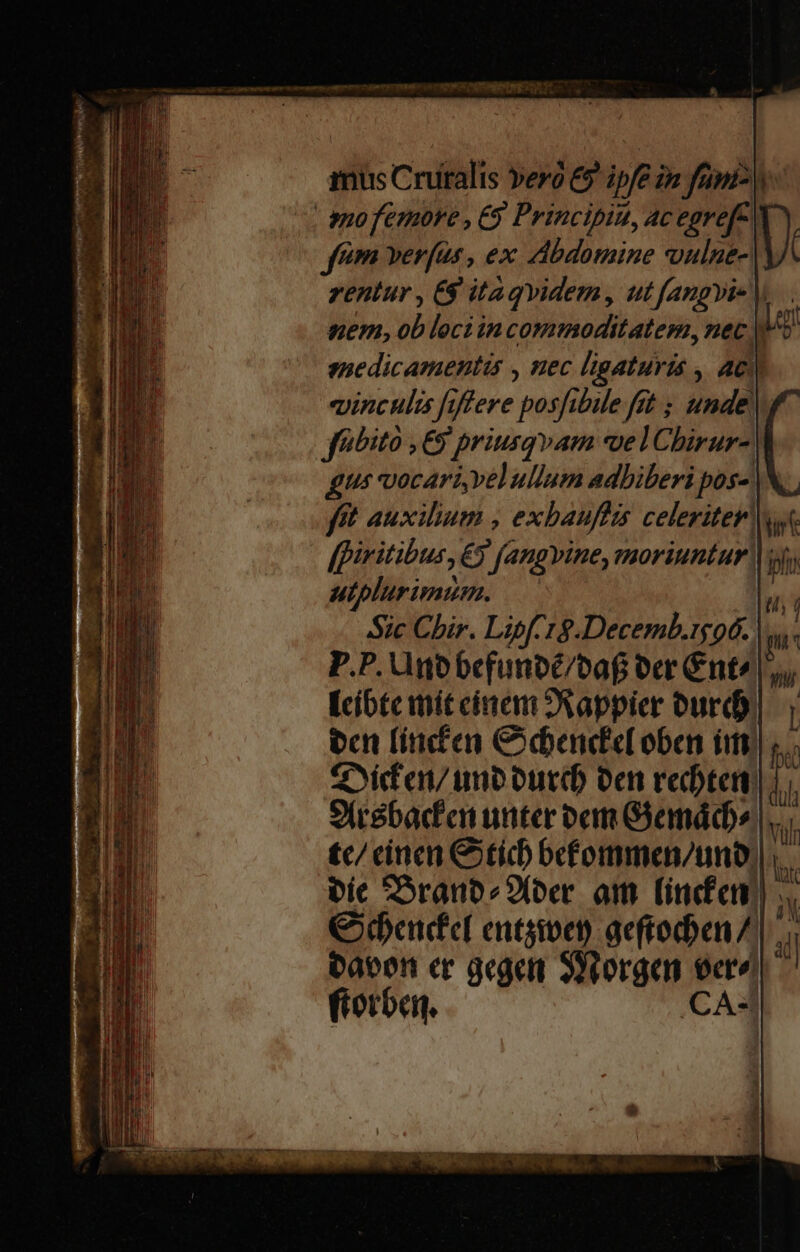 mus Cruralis verò & ipse in sum-
mo femore, & Principiū, ac egres-
sum versus, ex Abdomine vulne-
rentur, & ita qvidem, ut sangvi-
nem, ob loci incommoditatem, nec
medicamentis, nec ligaturis, ac
vinculis sistere possibile sit; unde
subitò, & priusqvam vel Chirur-
gus vocari, vel ullum adhiberi pos-
sit auxilium, exhaustis celeriter
spiritibus, & sangvine, moriuntur
utplurimùm.
Sic Chir. Lips. 18. Decemb. 1596.
P.P. Und befundē/daß der Ent-
leibte mit einem Rappier durch
den lincken Schenckel oben im
Dicken/ und durch den rechten
Arsbacken unter dem Gemäch-
te/ einen Stich bekommen/und
die Brand-Ader am lincken
Schenckel entzwey gestochen/
davon er gegen Morgen ver-
storben.
CA-